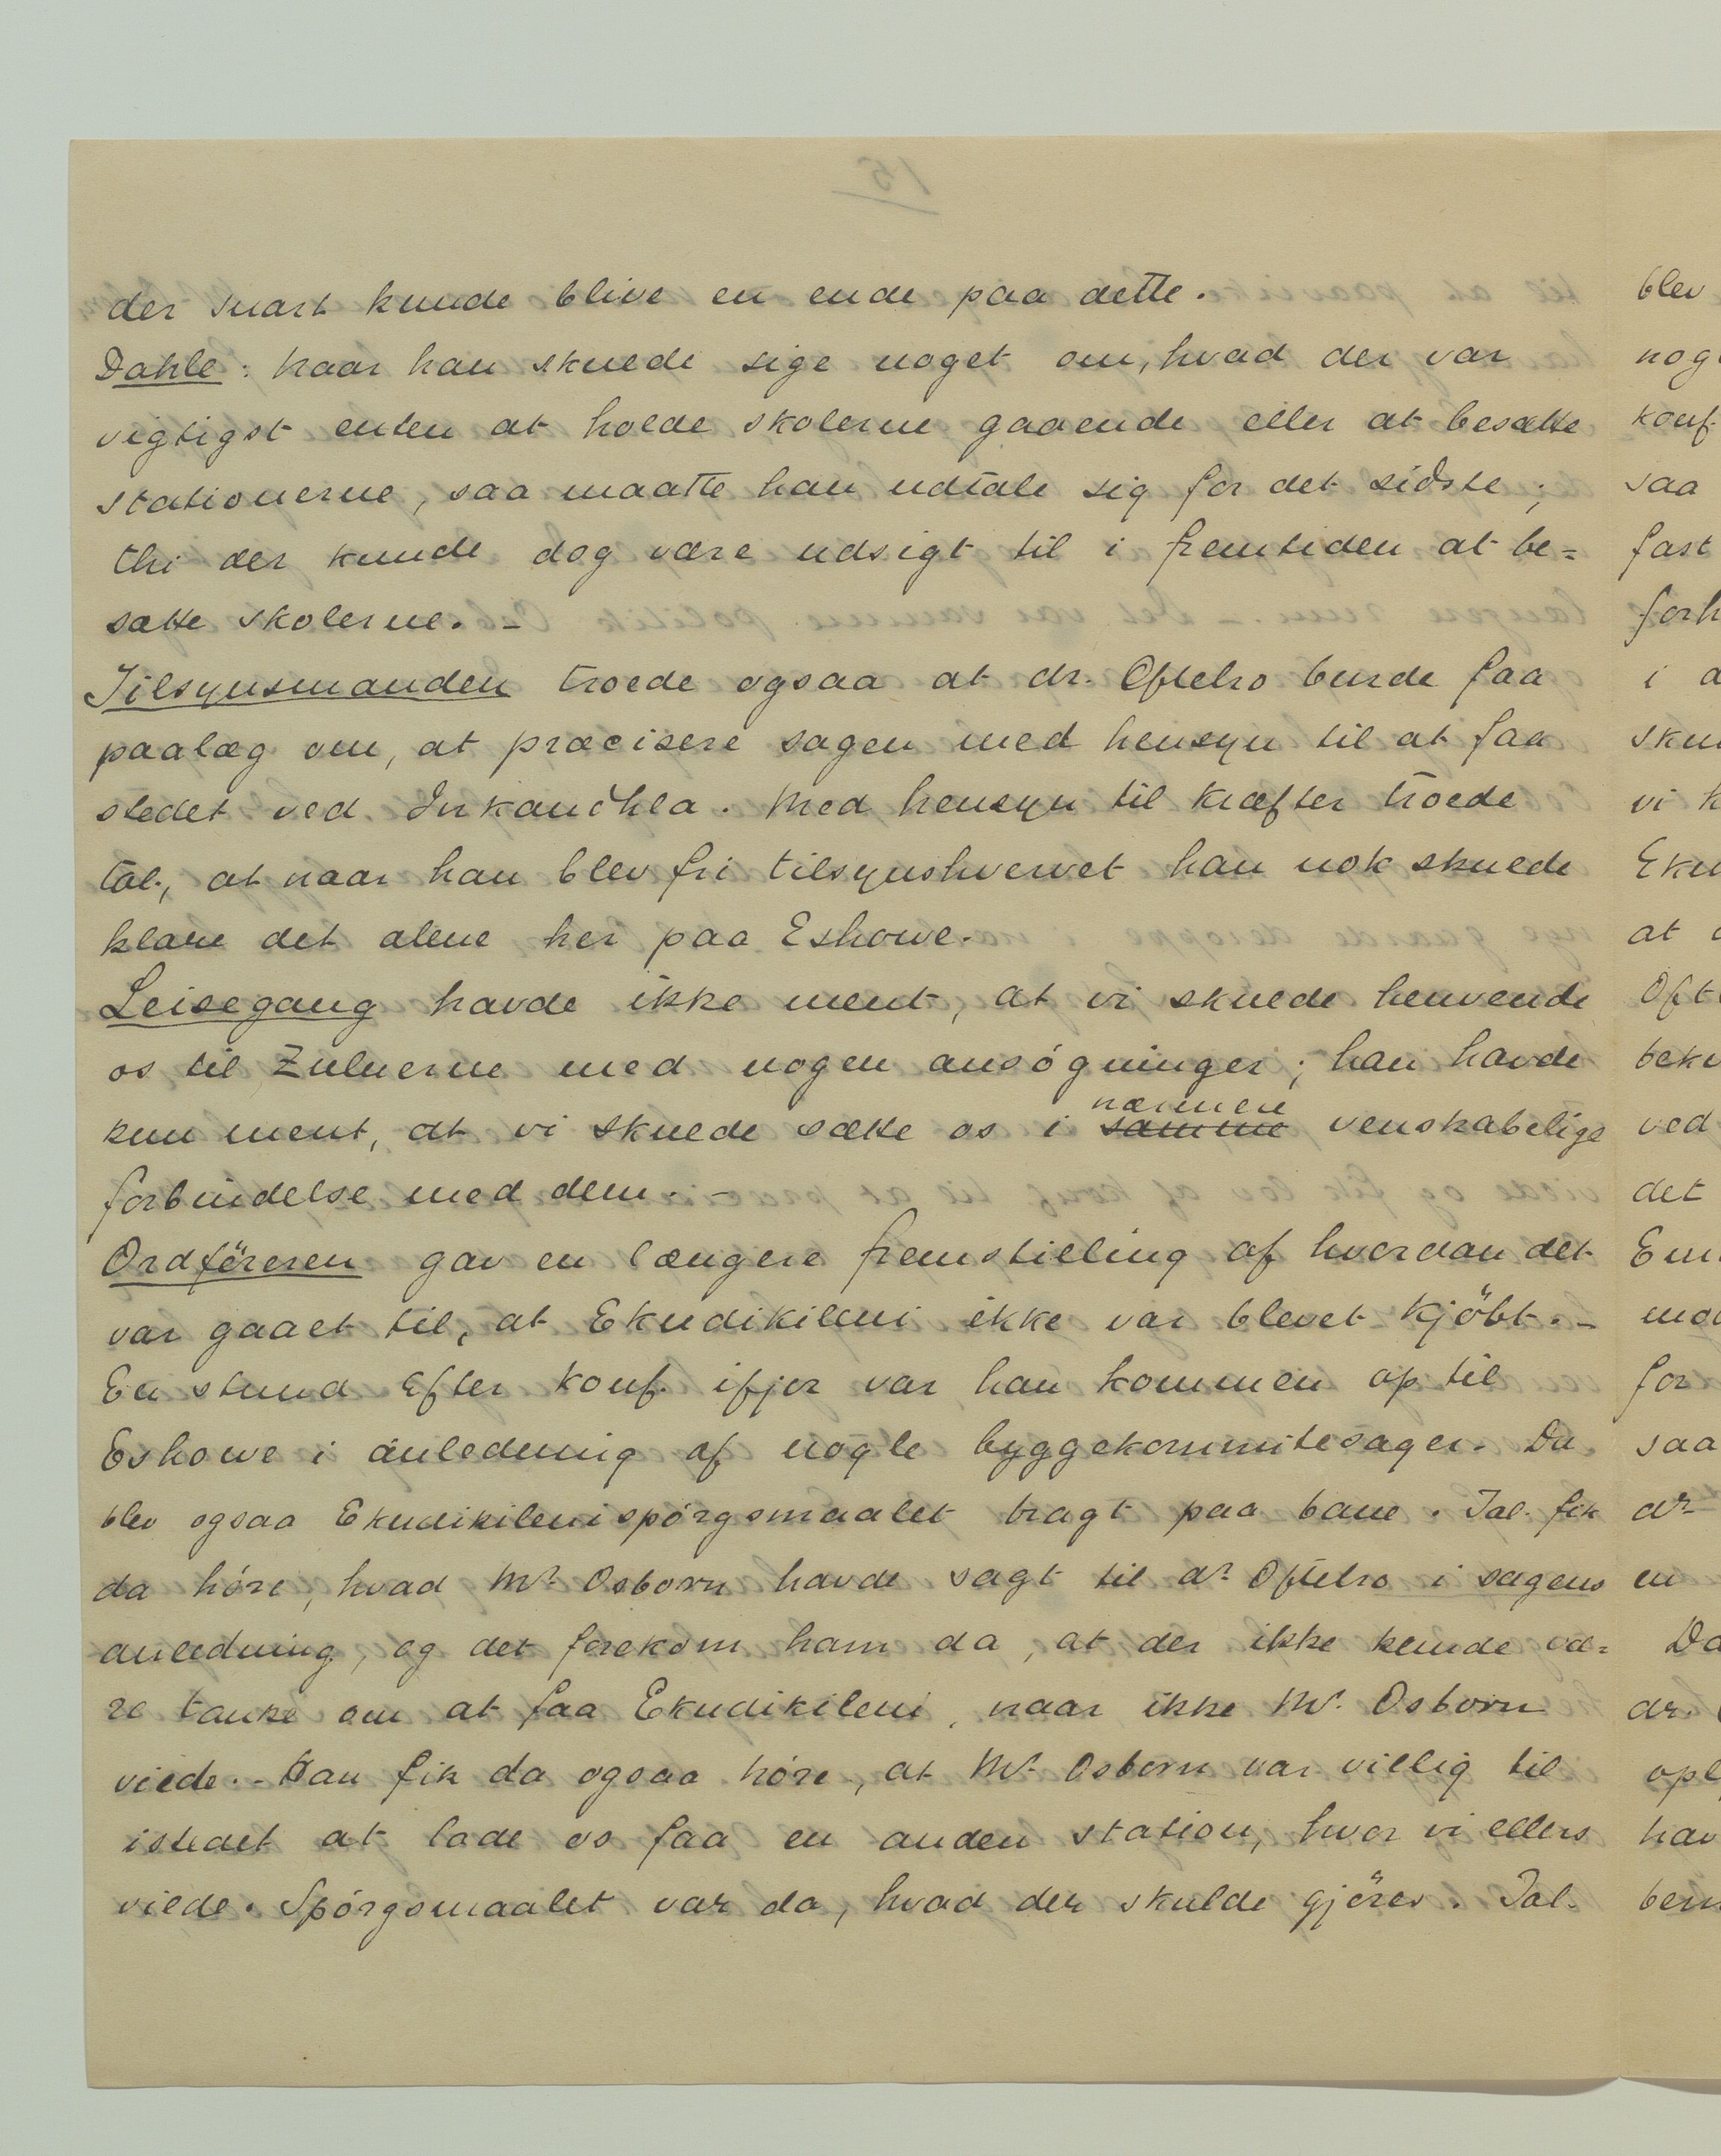 der snart kunde blive en ende paa dette.
Dahle: Naar han skulde sige noget om, hvad der var
vigtigst enten at holde skolerne gaaende eller at besætte
stationerne, saa maatte han udtale sig for det sidste;
thi der kunde dog være udsigt til i fremtiden at be=
sætte skolerne. -
Tilsynsmanden troede ogsaa at dr. Oftebro burde faa
paalæg om, at præcisere sagen med hensyn til at faa
stedet ved Inkandhla. Med hensyn til kræfter troede
tal., at naar han blev fri tilsynshvervet han nok skulde
klare det alene her paa Eshowe.
Leisegang havde ikke ment, at vi skulde henvende
os til Zuluerne med nogen ansøgninger; han havde
nærmere
kun ment, at vi skulde sætte os i samme venskabelige
forbindelse med dem. -
Ordföreren gav en længere fremstilling af hvordan det
var gaaet til, at Ekudikileni ikke var blevet kjöbt. -
En stund efter konf. ifjor var han kommen op til
Eshowe i anledning af nogle byggekommitesager. Da
blev ogsaa Ekudikilenispørgsmaalet bragt paa bane. Tal. fik
da høre, hvad Mr. Osborn havde sagt til dr. Oftebro i sagens
anledning, og det forekom ham da, at der ikke kunde væ=
re tanke om at faa Ekudikileni, naar ikke Mr. Osborn
vilde. - Han fik da ogsaa høre, at Mr. Osborn var villig til
istedet at lade os faa en anden station, hvor vi ellers
vilde. Spørgsmaalet var da, hvad der skulde gjöres. Tal.
blev
konf.
saa
fast
forh
vi
at
Oft
ved
det
for
saa
dr
en
dr.